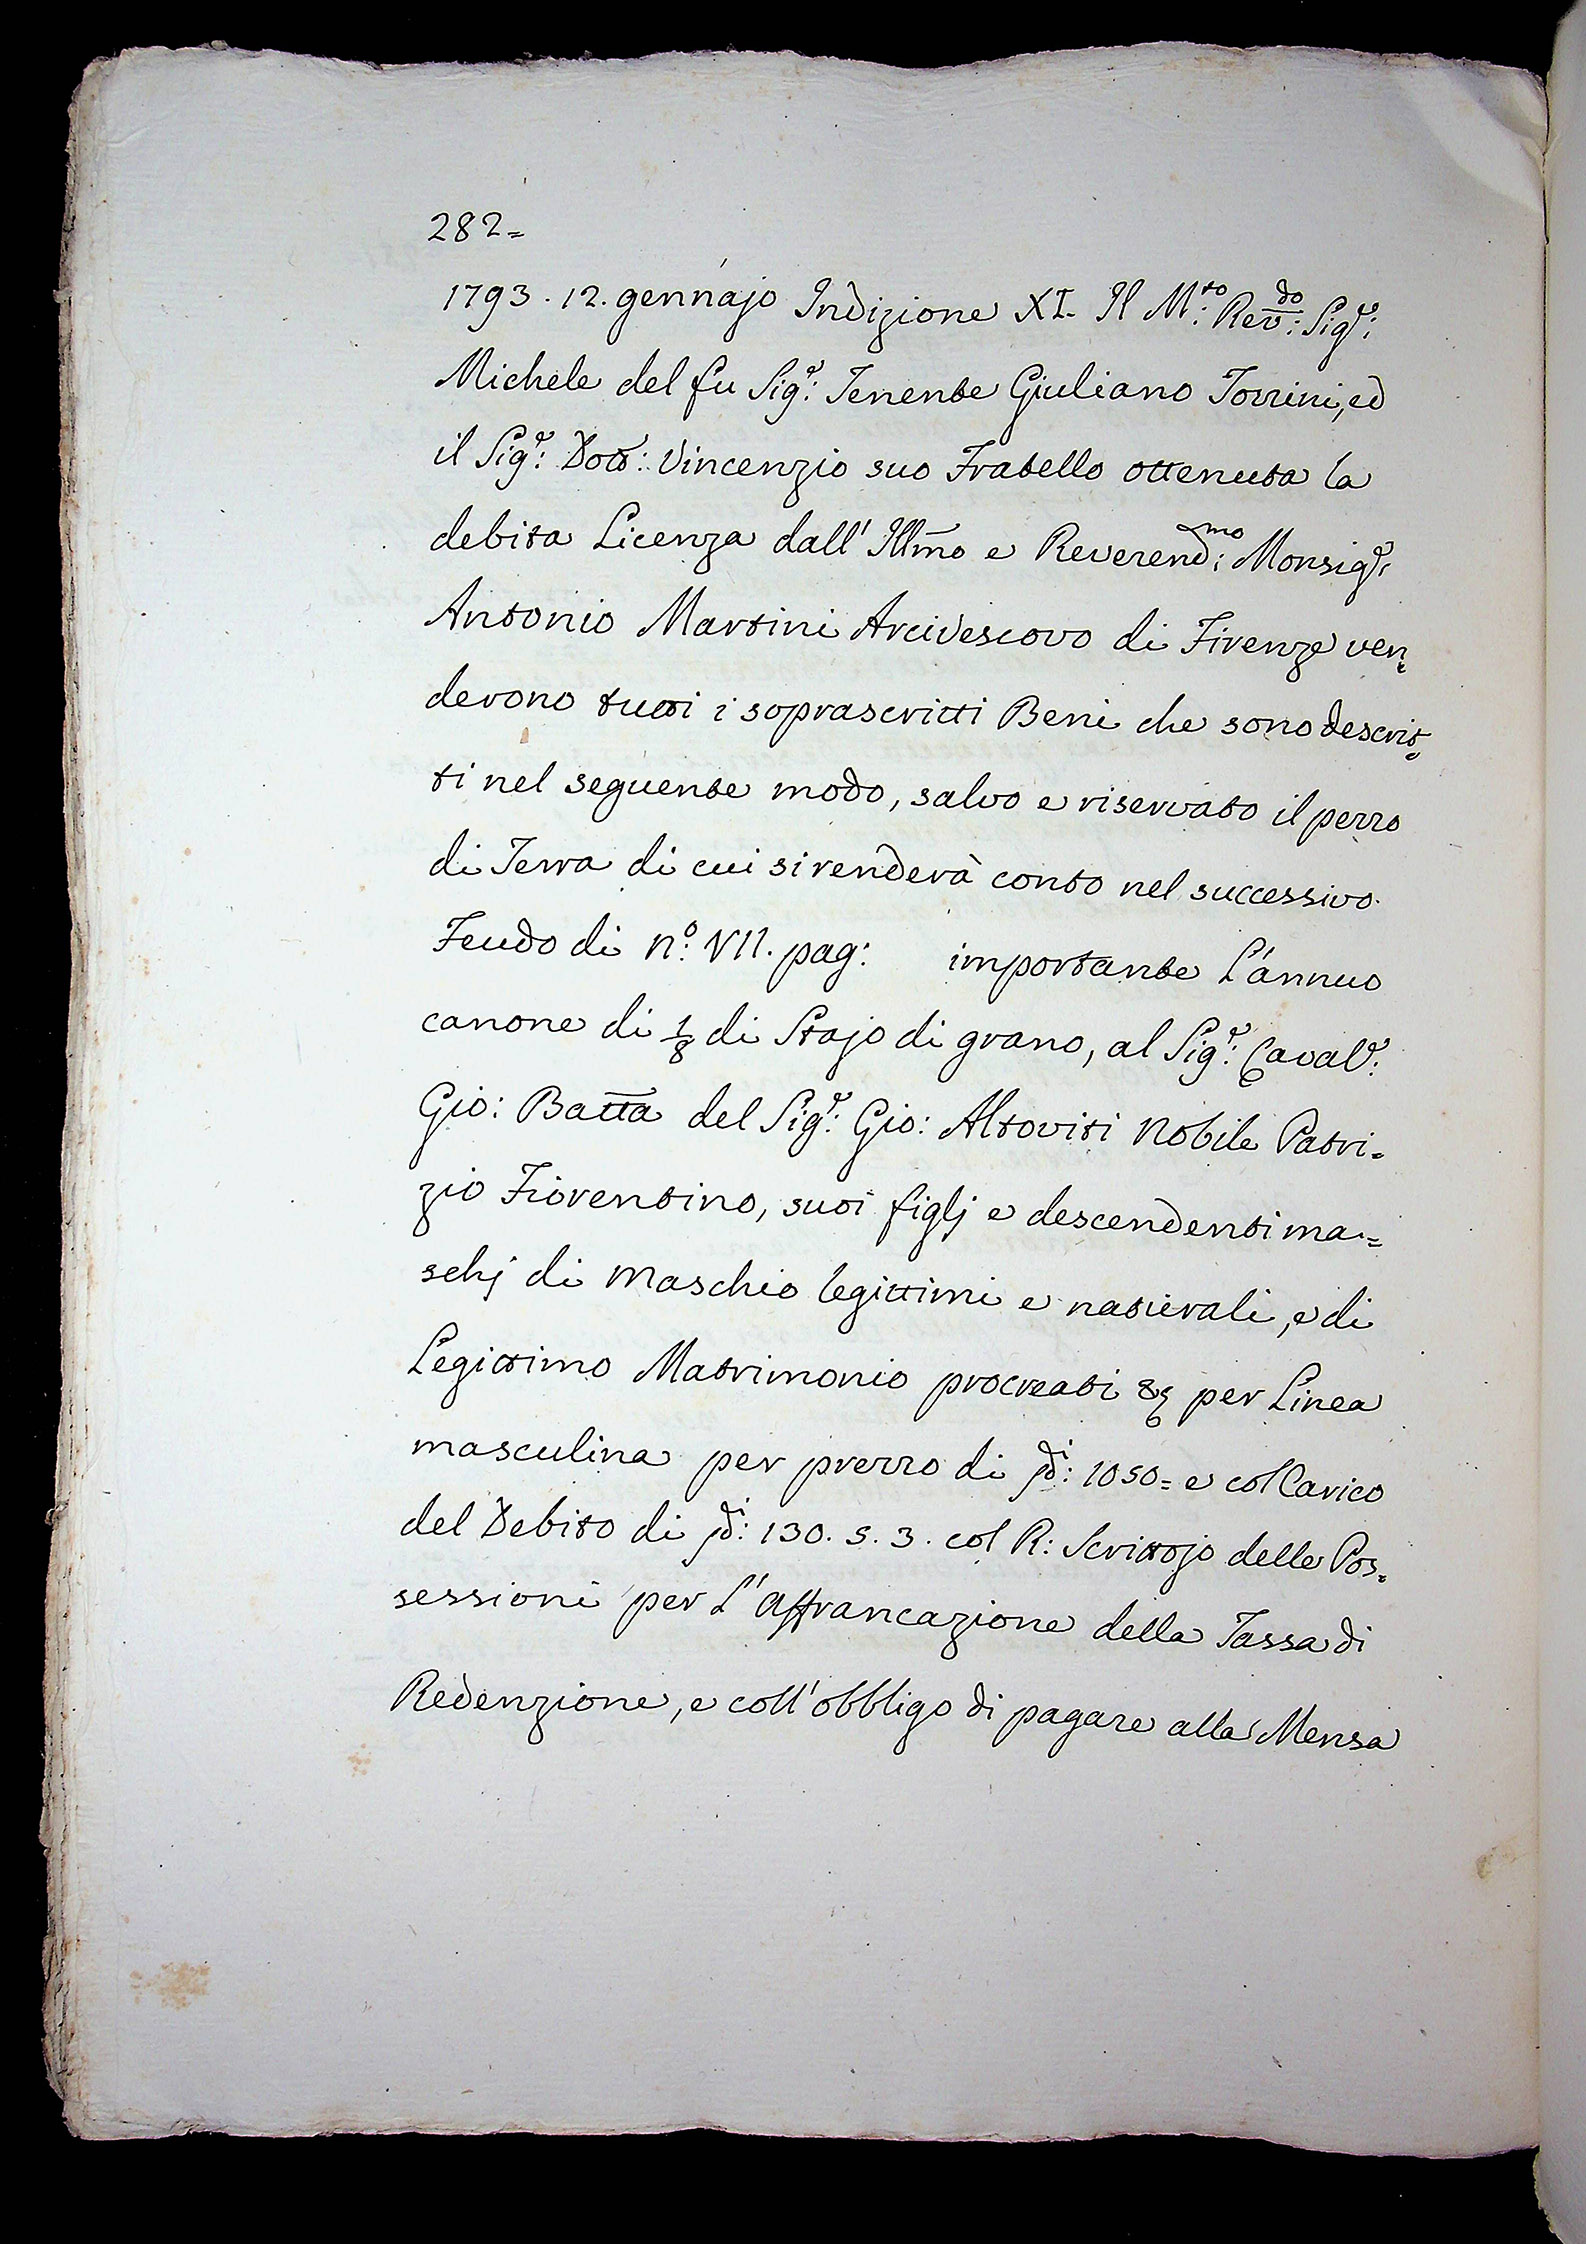 282=
1793. 12. gennajo Indizione XI. Il M:to Rev:do Sig:r
Michele del fu Sig:r Tenente Giuliano Torrini, ed
il Sig:r Dott: Vincenzio suo Fratello ottenuta la
debita Licenza dall' Illmo e Reverend:mo Monsig:r
Antonio Martini Arcivescovo di Firenze ven=
derono tutti i soprascritti Beni che sono descrit=
ti nel seguente modo, salvo e riservato il pezzo
di Terra di cui si renderà conto nel successivo
Feudo di n:o VII. pag: importante L'annuo
canone di 1/8 di Stajo di grano, al Sig:r Caval:r
Gio: Batta del Sig:r Gio: Altoviti Nobile Patri=
zio Fiorentino, suoi figlj e descendenti ma=
schj di Maschio legittimi e naturali, e di
Legittimo Matrimonio procreati &c per Linea
masculina per prezzo di ∫di: 1050= e col Carico
del Debito di ∫di: 130. 5. 3. col R: Scrittojo delle Pos=
sessioni per L'Affrancazione della Tassa di
Redenzione, e coll'obbligo di pagare alla Mensa